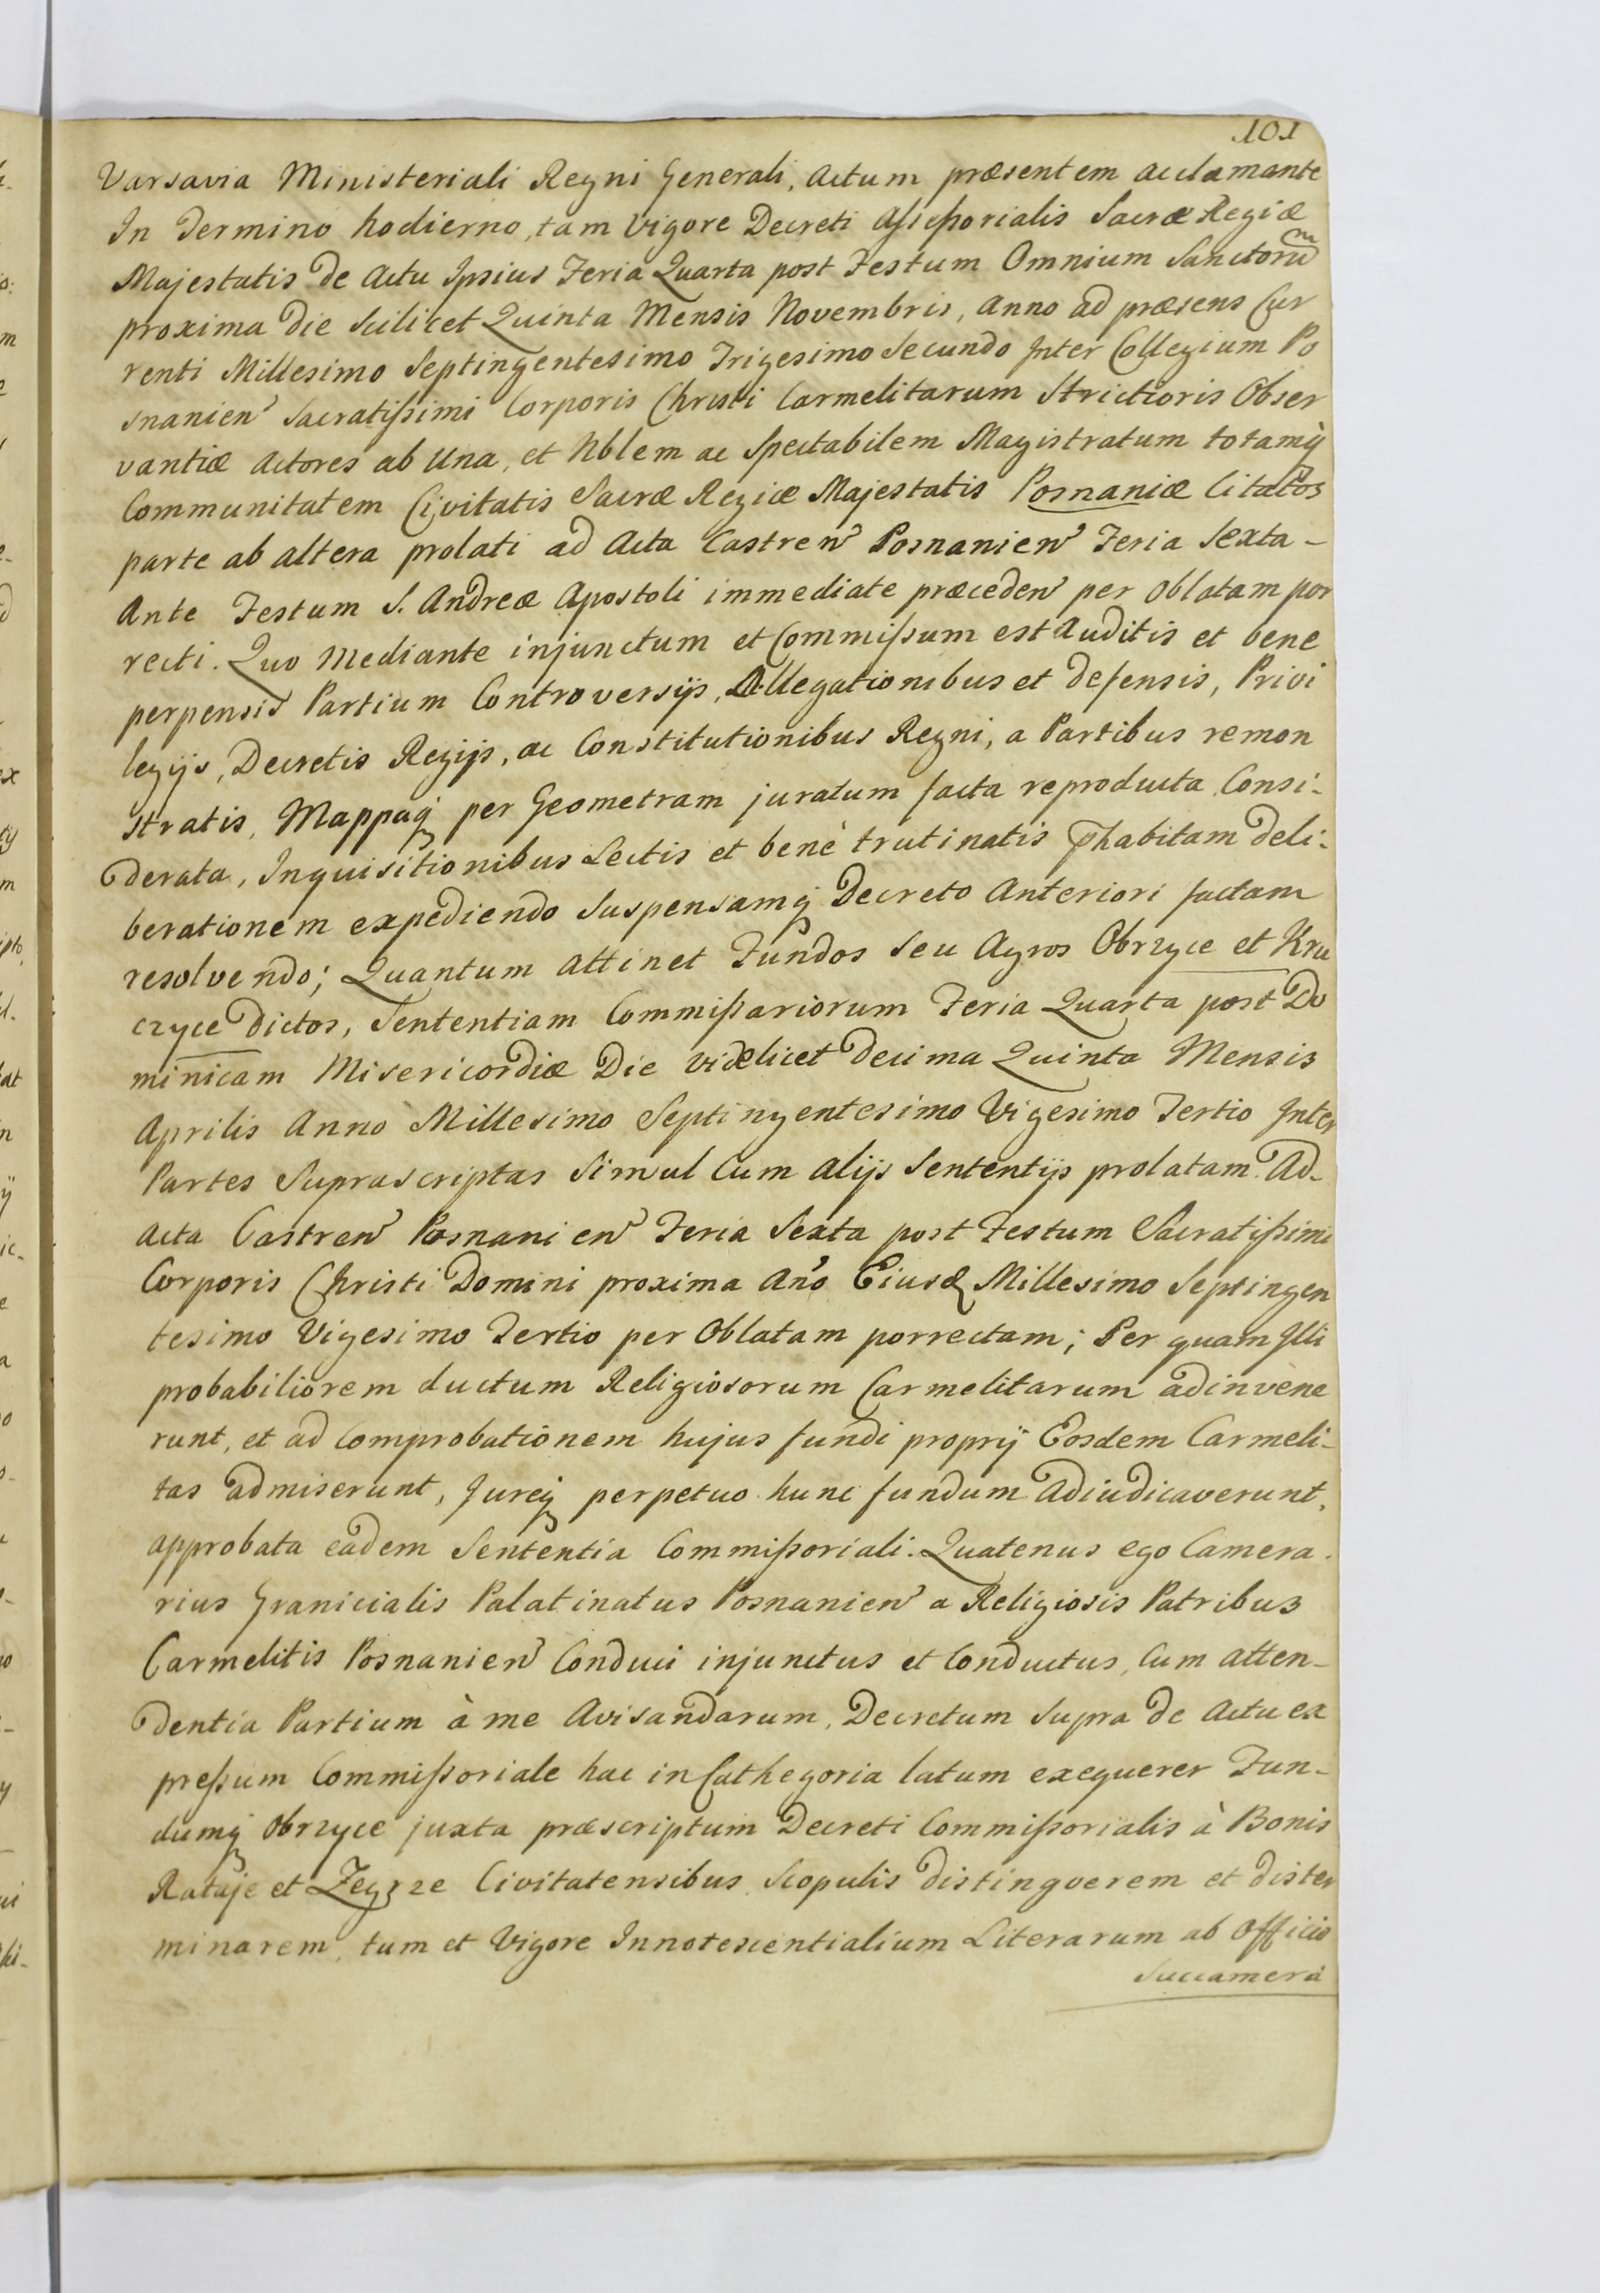 101
Varsavia Ministeriali Regni Generali, Actum præsentem acclamante
In Termino hodierno, tam vigore Decreti Assessorialis Sacræ Regiæ
Majestatis de Actu Ipsius Feria Quarta post Festum Omnium Sanctorum
proxima die Scilicet Quinta Mensis Novembris, Anno ad præsens Cur
renti Millesimo Septingentesimo Trigesimo Secundo Inter Collegium Po
snanien Sacratissimi Corporis Christi Carmelitarum Strictioris Obser
vantiæ Actores ab Una, et Nblem ac Spectabilem Magistratum totamq
Communitatem Civitatis Sacræ Regiæ Majestatis Posnaniæ Citatos
parte ab altera prolati ad Acta Castren Posnanien Feria Sexta -
Ante Festum S. Andreæ Apostoli immediate præceden per Oblatam por
recti. Quo Mediante injunctum et Commissum est Auditis et bene
perpensis Partium Controversijs, Allegationibus et defensis, Privi
legijs, Decretis Regijs, ac Constitutionibus Regni, a Partibus remon
stratis, Mappaq per Geometram juratum facta reproducta Consi-
derata, Inquisitionibus Lectis et benè trutinatis phabitam deli-
berationem expediendo Suspensamq Decreto Anteriori factam
resolvendo; Quantum attinet Fundos Seu Agros Obrzyce et Kru
czyce dictos, Sententiam Commissariorum Feria Quarta post Do
minicam Misericordiæ Die videlicet Decima Quinta Mensis
Aprilis Anno Millesimo Septingentesimo Vigesimo Tertio Inter
Partes Suprascriptas Simul Cum alijs Sententijs prolatam Ad-
Acta Castren Posnanien Feria Sexta post Festum Sacratissimi
Corporis Christi Domini proxima Ano Eiusd Millesimo Septingen
tesimo Vigesimo Tertio per Oblatam porrectam; Per quam Illi
probabiliorem ductum Religiosorum Carmelitarum adinvene
runt, et ad Comprobationem hujus fundi proprij Eosdem Carmeli-
tas admiserunt, Jureq perpetuo hunc fundum Adiudicaverunt,
approbata eadem Sententia Commissoriali. Quatenus ego Camera-
rius Granicialis Palatinatus Posnanien a Religiosis Patribus
Carmelitis Posnanien Conduci injunctus et Conductus, Cum atten-
dentia Partium à me Avisandarum, Decretum Supra de Actu ex
pressum Commissoriale hac in Cathegoria latum exequerer Fun-
dumq Obrzyce juxta præscriptum Decreti Commissorialis à Bonis
Rataje et Zegrze Civitatensibus Scopulis distinguerem et dister
minarem, tum et Vigore Innotescentialium Literarum ab Officio
Succamera